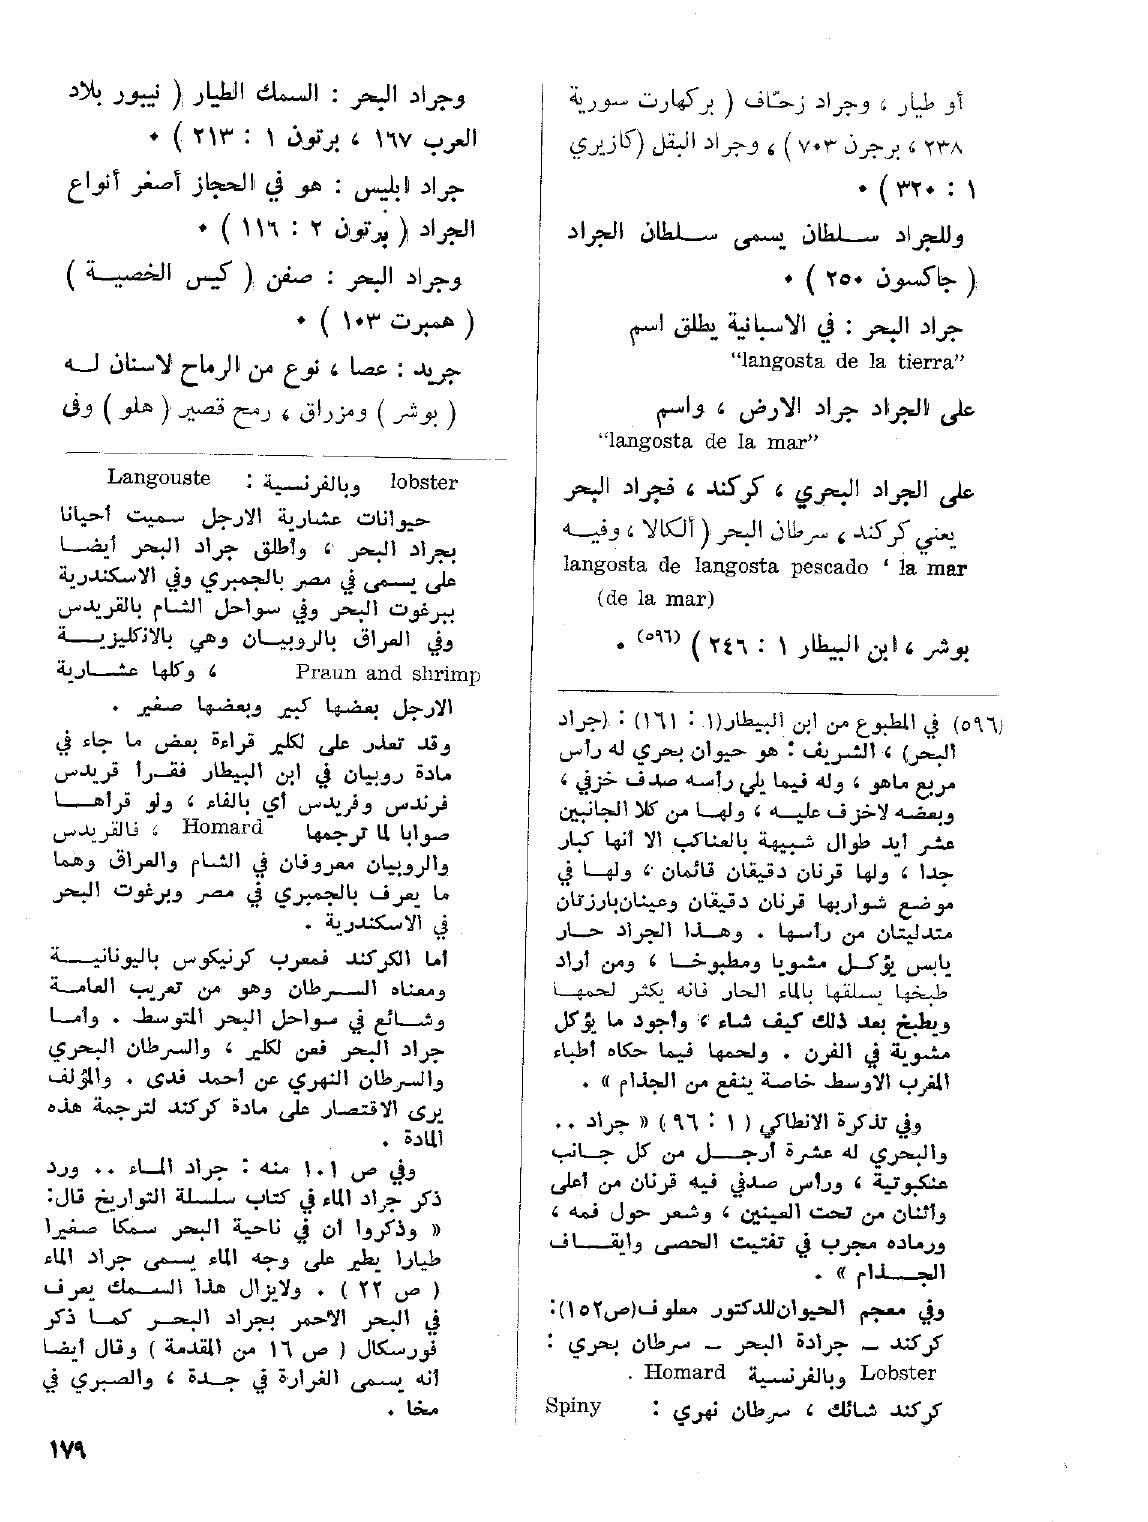 أو طيار ، وجراد زحّاف ( بركهارت سورية
٢٣٨ ، برجرن ٧٠٣ ) ، وجراد البقل (كازيري
١ : ٣٢٠ ) ٠
وللجراد سلطان يسمى سلطان الجراد
( جاكسون ٢٥٠ ) ٠
جراد البحر : في الاسبانية يطلق اسم
“langosta de la tierra”
على الجراد جراد الارض ، واسم
“langosta de la mar”
على الجراد البحري ، كركند ، فجراد البحر
يعني كركند ، سرطان البحر ( ألكالا ، وفيه
langosta de langosta pescado ‘ la mar
(de la mar)
بوشر ، ابن البيطار ١ : ٢٤٦ ) (٥٩٦) ٠
(٥٩٦) في المطبوع من ابن البيطار(١ : ١٦١) : (جراد
البحر) ، الشريف : هو حيوان بحري له رأس
مربع ماهو ، وله فيما يلي رأسه صدف خزفي ،
وبعضه لاخزف عليه ، ولها من كلا الجانبين
عشر أيد طوال شبيهة بالعناكب الا أنها كبار
جدا ، ولها قرنان دقيقان قائمان ، ولها في
موضع شواربها قرنان دقيقان وعينان بارزتان
متدليتان من رأسها . وهذا الجراد حار
يابس يؤكل مشويا ومطبوخا ، ومن أراد
طبخها يسلقها بالماء الحار فانه يكثر لحمها
ويطبخ بعد ذلك كيف شاء ، وأجود ما يؤكل
مشوية في الفرن . ولحمها فيما حكاه أطباء
المغرب الاوسط خاصة ينفع من الجذام » .
وفي تذكرة الانطاكي ( ١ : ٩٦ ) « جراد ..
والبحري له عشرة أرجل من كل جانب
عنكبوتية ، ورأس صدفي فيه قرنان من أعلى
واثنان من تحت العينين ، وشعر حول فمه ،
ورماده مجرب في تفتيت الحصى وايقاف
الجذام » .
وفي معجم الحيوان للدكتور معلوف (ص١٥٢):
كركند – جرادة البحر – سرطان بحري :
Lobster وبالفرنسية Homard .
كركند شائك ، سرطان نهري : Spiny
وجراد البحر : السمك الطيار ( نيبور بلاد
العرب ١٦٧ ، برتون ١ : ٢١٣ ) ٠
جراد ابليس : هو في الحجاز أصغر أنواع
الجراد ( برتون ٢ : ١١٦ ) ٠
وجراد البحر : صفن ( كيس الخصية )
( همبرت ١٠٣ ) ٠
جريد : عصا ، نوع من الرماح لاسنان له
( بوشر ) ومزراق ، رمح قصير ( هلو ) وفى
lobster وبالفرنسية : Langouste
حيوانات عشارية الارجل سميت أحيانا
بجراد البحر ، وأطلق جراد البحر أيضا
على يسمى في مصر بالجمبري وفي الاسكندرية
ببرغوث البحر وفي سواحل الشام بالقريدس
وفي العراق بالروبيان وهي بالانكليزية
Praun and shrimp ، وكلها عشارية
الارجل بعضها كبير وبعضها صغير .
وقد تعذر على لكلير قراءة بعض ما جاء في
مادة روبيان في ابن البيطار فقرأ قريدس
فرندس وفريدس أي بالفاء ، ولو قرأها
صوابا لما ترجمها Homard ، فالقريدس
والروبيان معروفان في الشام والعراق وهما
ما يعرف بالجمبري في مصر وبرغوث البحر
في الاسكندرية .
أما الكركند فمعرب كرنيكوس باليونانية
ومعناه السرطان وهو من تعريب العامة
وشائع في سواحل البحر المتوسط . وأما
جراد البحر فعن لكلير ، والسرطان البحري
والسرطان النهري عن أحمد فدى . والمؤلف
يرى الاقتصار على مادة كركند لترجمة هذه
المادة .
وفي ص ١٠١ منه : جراد الماء .. ورد
ذكر جراد الماء في كتاب سلسلة التواريخ قال:
« وذكروا أن في ناحية البحر سمكا صغيرا
طيارا يطير على وجه الماء يسمى جراد الماء
( ص ٢٢ ) . ولايزال هذا السمك يعرف
في البحر الاحمر بجراد البحر كما ذكر
فورسكال ( ص ١٦ من المقدمة ) وقال أيضا
أنه يسمى الفرارة في جدة ، والصبري في
مخا .
١٧٩